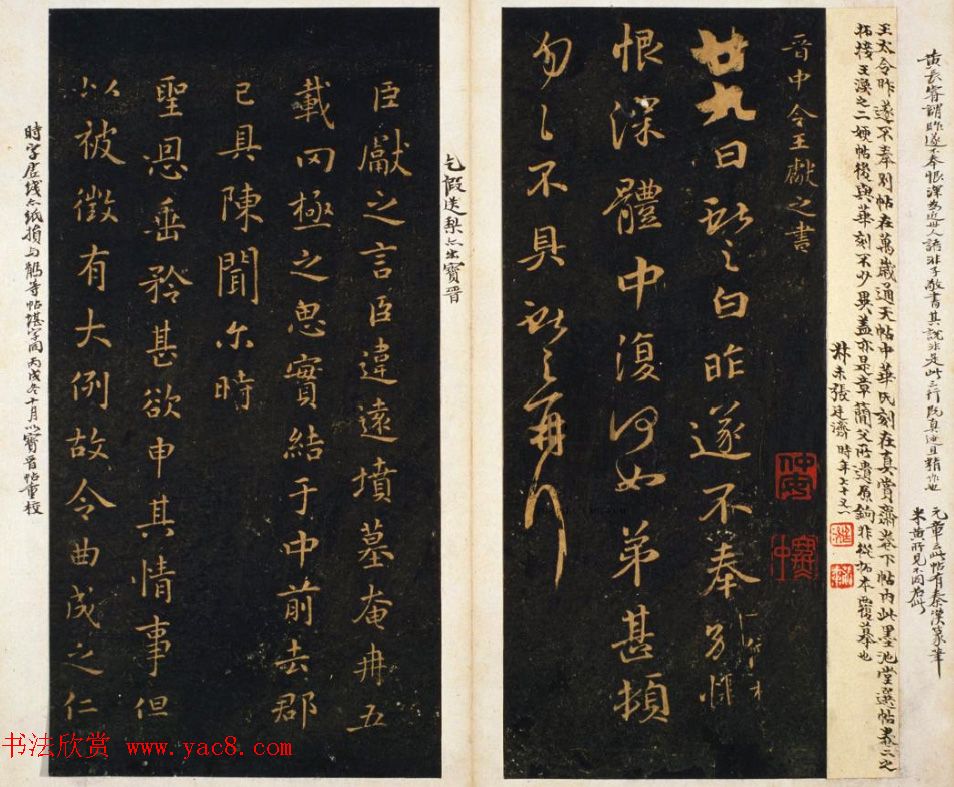 黄長睿謂昨遂不奉恨深為近世人語非子敬書其說非是此三行既真迹且精作也
元章云此帖有秦漢篆筆
米黄所見不同若此
王大令昨遂不奉別帖在萬歲通天帖中華氏刻在真賞齋卷下帖內此墨池堂選帖卷二之
拓接王渙之二嫂帖後與華刻不少異蓋亦是章藺父所遺原鉤非從拓本覆摹也
張廷濟時年七十五
晉中令王獻之書
廿九日獻之白昨遂不奉別悵
恨深體中復何如弟甚頓
匆匆不具獻之再行
乞假送梨亦出寶晉
臣獻之言臣違遠墳墓奄冉五
載罔極之思實結于中前去郡
已具陳聞尔時
聖恩垂矜甚欲申其情事但
以被徵有大例故令曲成之仁
時字
丙戌冬十月以寶晉帖重校
书法欣赏 www.yac8.com